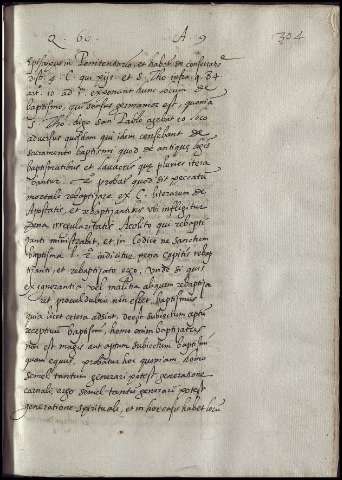 Q. 66. A. 9 304
Epifanius in Penitendoria, et habet. de consecrate
dist. 4. C. qui xije et S. Tho infra. q. 84
art. 10 ad exponant hunc locum de
baptismo, qui sensus germanus est, quonia
S. Tho. digo san Pablo agebat eo loco
adversus quosdam qui idem censebant de
sacramento baptismi quod de antiquis legis
baptismatibus et lavacris que pluries itera
bantur. probat quod sit peccatu
mortale rebaptizare ex C. literarum de
Apostatis, et rebaptizantibus ubi infligitur
pena irregularitatis Acolito qui rebapti
zanti ministrabat, et in Codice ne sanctum
baptisma l. 2. inducitur pena capitis rebap
tizanti, et rebaptizato ergo, unde si quis
ex ignorantia vel malitia aliquem rebaptiza
ret, procul dubio non esset baptismus
quia licet cetera adsint, deest subiectum aptu
receptivum baptismi, homo enim baptizatus
non est magis aut aptum subiectum baptismi
quam equus, probatur hoc quoniam homo
semel tantum generari potest generatione
carnali, ergo semel tantum generari potest
generatione spirituali, et in hoc casu habet locu